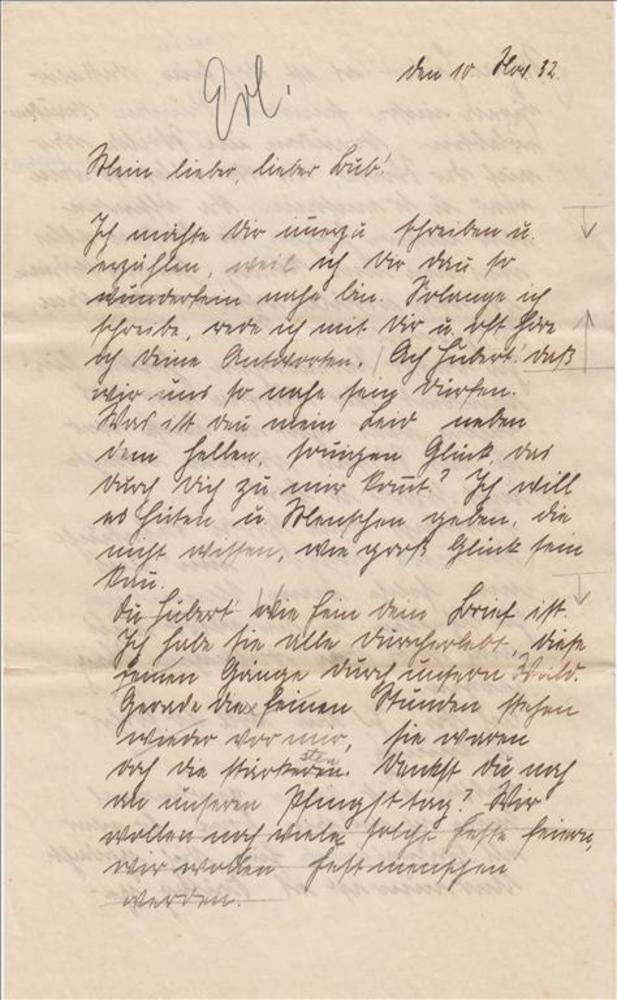 den 10. Nov. 32.
Erl.
Mein lieber, lieber Bub!
Ich möchte Dir immerzu schreiben u.
erzählen, weil ich Dir dan̅ so
wunderfein nahe bin. Solange ich
schreibe, rede ich mit Dir u. oft höre
ich deine Antworten. Ach Hubert! daß
wir uns so nahe sein dürfen.
Was ist den̅ mein Leid neben
dem hellen, son̅igen Glück, das
durch Dich zu mir kom̅t? Ich will
es hüten u. Menschen geben, die
nicht wissen, wie groß Glück sein
kan̅.
Du Hubert wie fein dein Brief ist.
Ich habe sie alle durcherlebt, diese
feinen Gänge durch unsern Wald.
Gerade die feinen Stunden stehen
wieder vor mir, sie waren
doch die stärksten. Denkst Du noch
an unseren Pfingsttag? Wir
wollen noch viele solche Feste feiern,
wir wollen Festmenschen
werden.